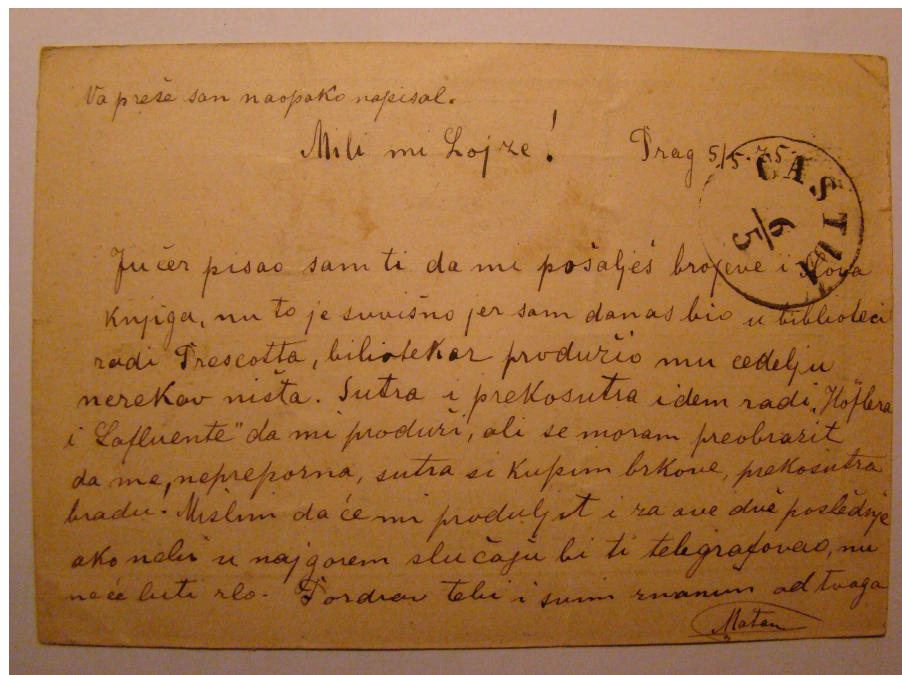 Va preše san naopako napisal.
Mili mi Lojze! Prag 5/5. 75.
CASTUA
6/5
Jučer pisao sam ti da mi pošalješ brojeve i slova
knjiga, nu to je suvišno jer sam danas bio u biblioteci
radi Prescotta, biliotekar produžio mu cedelju
nerekav ništa. Sutra i prekosutra idem radi „Höflera
i Lafluente" da mi produži, ali se moram preobrazit
da me, neprepozna, sutra si kupim brkove, prekosutra
bradu. Mislim da će mi produljit i za ove dvě poslědnje
ako nebi u najgorem slučaju bi ti telegrafovao, nu
neće biti zlo. Pozdrav tebi i svim znanim od tvoga
Matan